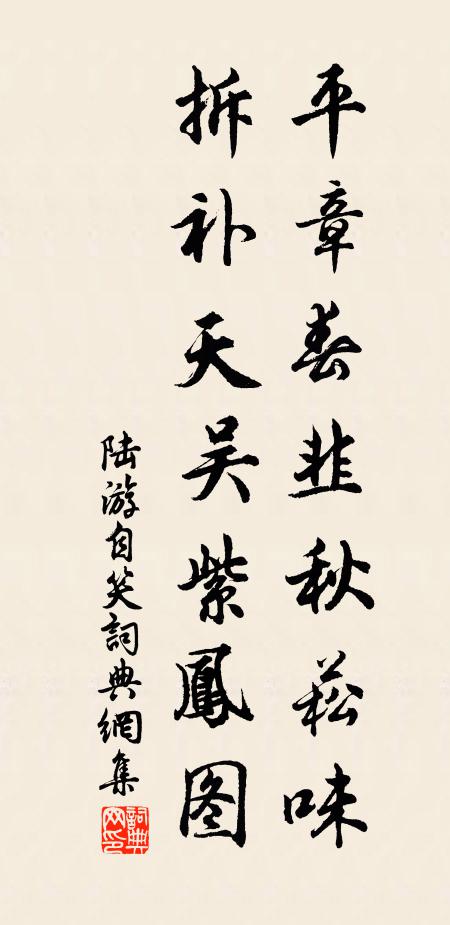 平章春韭秋菘味
拆补天吴紫鳳图
陆游自笑詞典網集
詞典網印